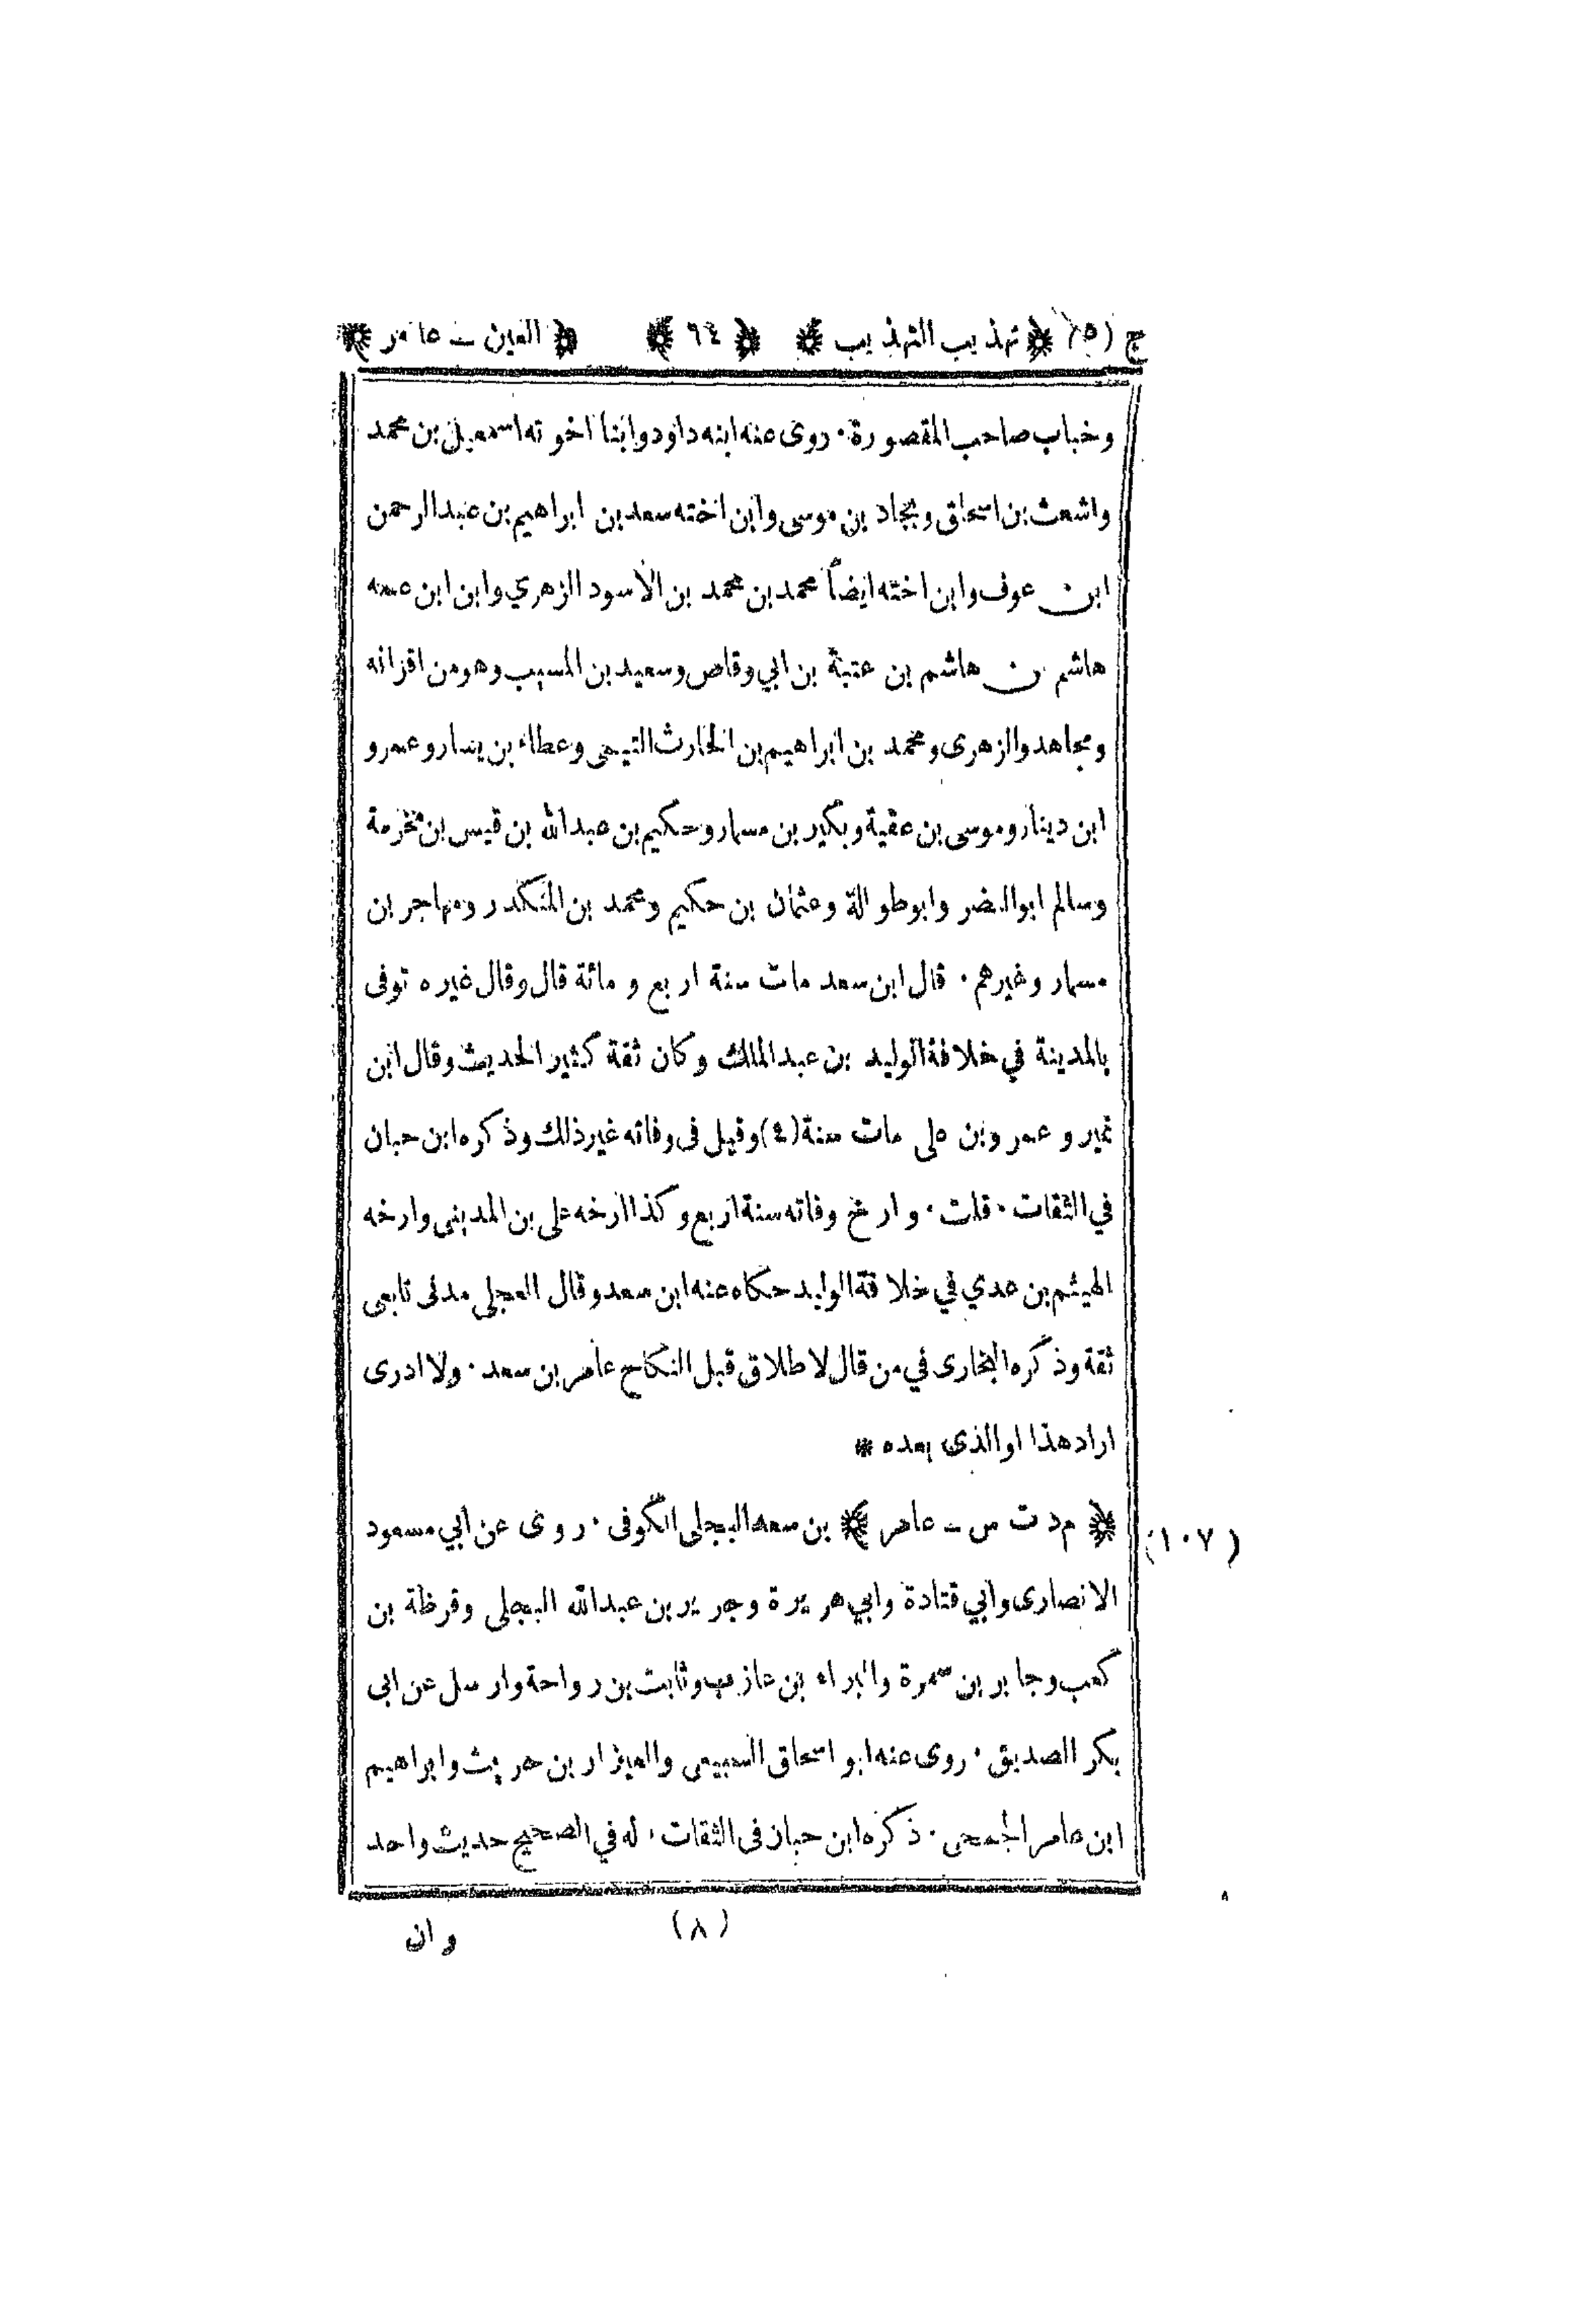 ج (٥) ﴿ تهذيب التهذيب ﴾ ﴿ ٦٤ ﴾ ﴿ العين - عامر ﴾
وخباب صاحب المقصورة · روى عنه ابنه داود وابنا اخوته اسمعيل بن محمد
واشعث بن اسحاق وبجاد بن موسى وابن اخته سعد بن ابراهيم بن عبد الرحمن
ابن عوف وابن اخته ايضاً محمد بن محمد بن الاسود الزهري وابن ابن عمه
هاشم بن هاشم بن عتبة بن ابي وقاص وسعيد بن المسيب وهو من اقرانه
ومجاهد والزهرى ومحمد بن ابراهيم بن الحارث التيمى وعطاء بن يسار وعمرو
ابن دينار وموسى بن عقبة وبكير بن مسمار وحكيم بن عبد الله بن قيس بن مخرمة
وسالم ابو النضر وابو طوالة وعثمان بن حكيم ومحمد بن المنكدر ومهاجر بن
مسمار وغيرهم · قال ابن سعد مات سنة اربع و مائة قال وقال غيره توفى
بالمدينة في خلافة الوليد بن عبد الملك وكان ثقة كثير الحديث وقال ابن
نمير و عمرو بن على مات سنة (٤) وقيل فى وفاته غير ذلك وذكره ابن حبان
في الثقات · قلت · وارخ وفاته سنة اربع وكذا ارخه على بن المدينى وارخه
الهيثم بن عدي في خلافة الوليد حكاه عنه ابن سعد وقال العجلى مدنى تابعى
ثقة وذكره البخارى في من قال لا طلاق قبل النكاح عامر بن سعد · ولا ادرى
اراد هذا او الذى بعده *
(١٠٧) ﴿ م د ت س - عامر ﴾ بن سعد البجلى الكوفى · روى عن ابي مسعود
الانصارى وابي قتادة وابي هريرة وجرير بن عبد الله البجلى وقرظة بن
كعب وجابر بن سمرة والبراء بن عازب وثابت بن رواحة وارسل عن ابى
بكر الصديق · روى عنه ابو اسحاق السبيعى والعيزار بن حريث وابراهيم
ابن عامر الجمحى · ذكره ابن حبان فى الثقات · له في الصحيح حديث واحد
(٨) وان